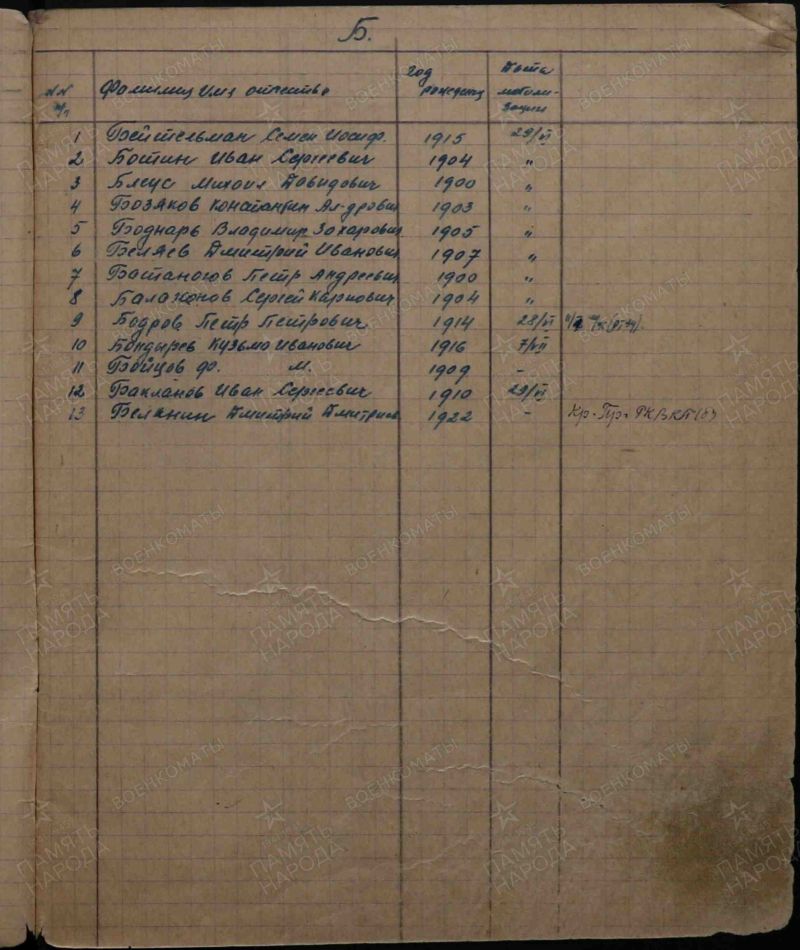 Б.
NN п/п Фамилия Имя отчество Год рождения Дата мобили-зации
1 Бейтельман Семен Иосиф. 1915 29/VI
2 Ботин Иван Сергеевич 1904 "
3 Блеус Михаил Давидович 1900 "
4 Бозяков Константин Ал-дрович 1903 "
5 Боднарь Владимир Захарович 1905 "
6 Беляев Дмитрий Иванович 1907 "
7 Бастаногов Петр Андреевич 1900 "
8 Балахонов Сергей Карпович 1904 "
9 Бодров Петр Петрович 1914 28/VI
10 Бондырев Кузьма Иванович 1916 7/VII
11 Бойцов Ф. М. 1909 -
12 Бакланов Иван Сергеевич 1910 29/VI
13 Белянин Дмитрий Дмитриев 1922 - Кр-Пр- РКВКП(б)
ПАМЯТЬ НАРОДА
ВОЕНКОМАТЫ